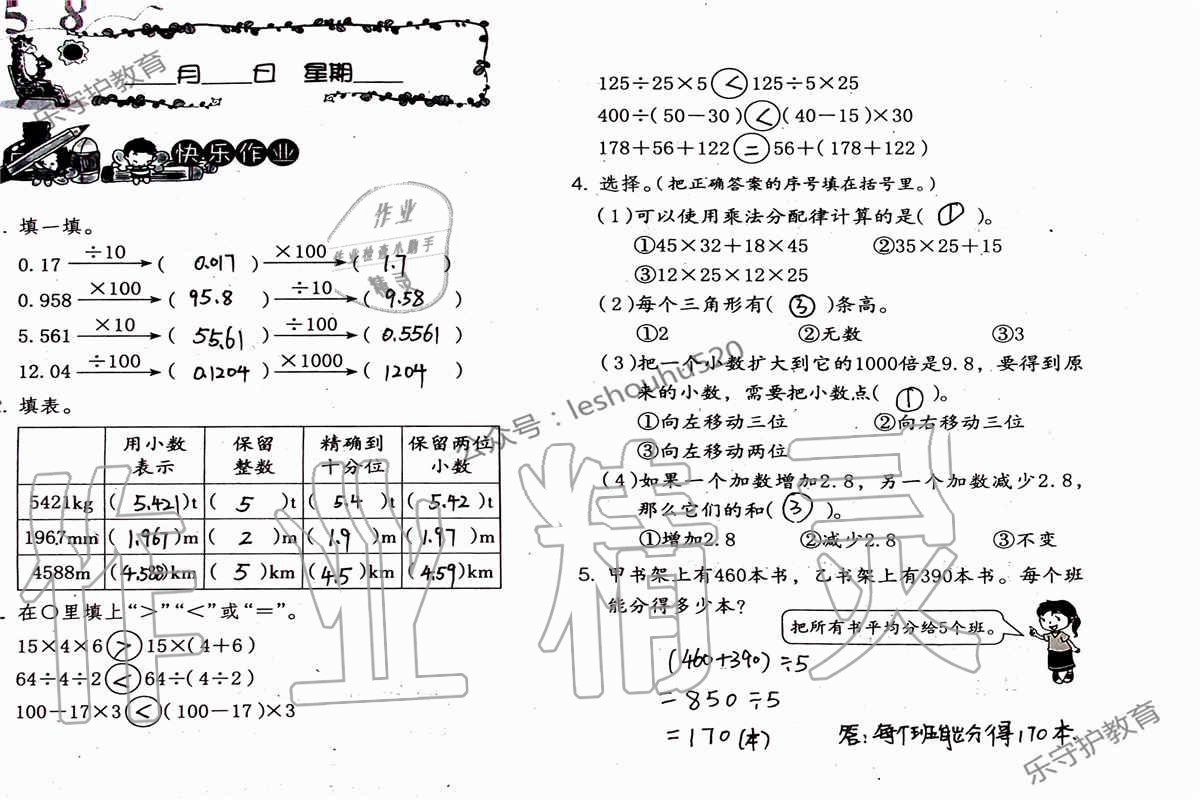 5 8
月 日 星期
快乐作业
填一填。
0.17 ÷10→( 0.017 ) ×100→( 1.7 )
0.958 ×100→( 95.8 ) ÷10→( 9.58 )
5.561 ×10→( 55.61 ) ÷100→( 0.5561 )
12.04 ÷100→( 0.1204 ) ×1000→( 1204 )
填表。
用小数表示 保留整数 精确到十分位 保留两位小数
5421kg ( 5.421 )t ( 5 )t ( 5.4 )t ( 5.42 )t
1967mm ( 1.967 )m ( 2 )m ( 1.9 )m ( 1.97 )m
4588m ( 4.588 )km ( 5 )km ( 4.5 )km ( 4.59 )km
在○里填上“>”“<”或“=”。
15×4×6 > 15×(4+6)
64÷4÷2 < 64÷(4÷2)
100-17×3 < (100-17)×3
125÷25×5 < 125÷5×25
400÷(50-30) < (40-15)×30
178+56+122 = 56+(178+122)
4. 选择。(把正确答案的序号填在括号里。)
(1)可以使用乘法分配律计算的是( ① )。
①45×32+18×45 ②35×25+15
③12×25×12×25
(2)每个三角形有( ③ )条高。
①2 ②无数 ③3
(3)把一个小数扩大到它的1000倍是9.8，要得到原
来的小数，需要把小数点( ① )。
①向左移动三位 ②向右移动三位
③向左移动两位
(4)如果一个加数增加2.8，另一个加数减少2.8，
那么它们的和( ③ )。
①增加2.8 ②减少2.8 ③不变
5. 甲书架上有460本书，乙书架上有390本书。每个班
能分得多少本?
把所有书平均分给5个班。
(460+390)÷5
=850÷5
=170(本)
答:每个班能分得170本.
乐守护教育
作业
作业检查小助手
精灵
公众号：leshouhu520
作业精灵
乐守护教育